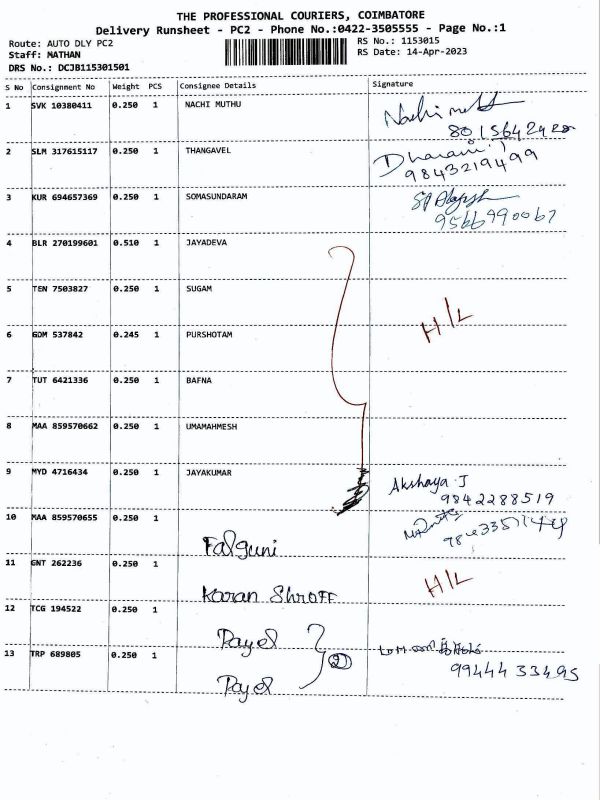 THE PROFESSIONAL COURIERS, COIMBATORE
Delivery Runsheet - PC2 - Phone No.:0422-3505555 - Page No.:1
Route: AUTO DLY PC2 RS No.: 1153015
Staff: NATHAN RS Date: 14-Apr-2023
DRS No.: DCJB115301501
S No Consignment No Weight PCS Consignee Details Signature
1 SVK 10380411 0.250 1 NACHI MUTHU Nachi muthu
8015642428
2 SLM 317615117 0.250 1 THANGAVEL Dharani
9843219499
3 KUR 694657369 0.250 1 SOMASUNDARAM
9566990067
4 BLR 270199601 0.510 1 JAYADEVA
5 TEN 7503827 0.250 1 SUGAM H/L
6 GDM 537842 0.245 1 PURSHOTAM
7 TUT 6421336 0.250 1 BAFNA
8 MAA 859570662 0.250 1 UMAMAHMESH
9 MYD 4716434 0.250 1 JAYAKUMAR Akshaya J
9842288519
10 MAA 859570655 0.250 1
Falguni
11 GNT 262236 0.250 1 H/L
Karan Shroff
12 TCG 194522 0.250 1
Payal 2
13 TRP 689805 0.250 1
9944433495
Payal